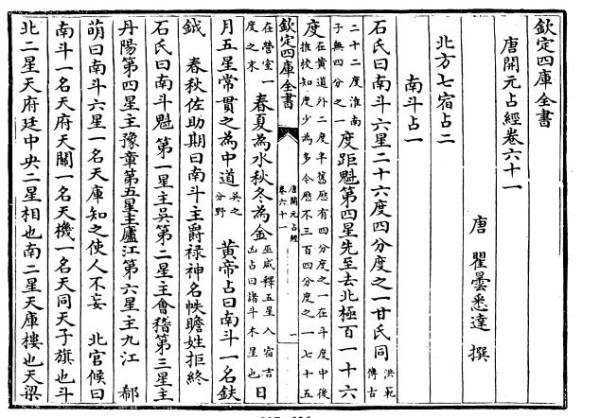 欽定四庫全書
唐開元占經卷六十一
唐 瞿曇悉達 撰
北方七宿占二
南斗占一
石氏曰南斗六星二十六度四分度之一甘氏同洪範傳古
二十二度淮南子無四分之一度距魁第四星先至去北極百一十六
度在黃道外二度半舊歷有四分度之一在斗度中後推校知度少為多今歷不三百四分度之一七十五
欽定四庫全書
唐開元占經
卷六十一
一
在營室一度之末春夏為水秋冬為金巫咸釋五星入宿吉凶占曰諸斗木星也日
月五星常貫之為中道吳之分野 黃帝占曰南斗一名鈇
鉞 春秋佐助期曰南斗主爵祿神名帙瞻姓拒終
石氏曰南斗魁第一星主吳第二星主會稽第三星主
丹陽第四星主豫章第五星主廬江第六星主九江 郗
萌曰南斗六星一名天庫知之使人不妄 北官候曰
南斗一名天府天關一名天機一名天同天子旗也斗
北二星天府廷中央二星相也南二星天庫樓也天梁